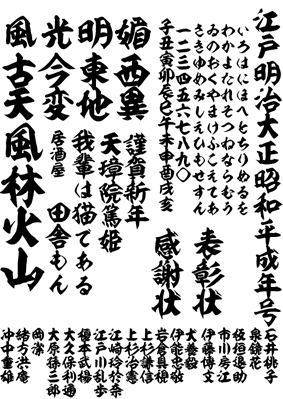 江戸明治大正昭和平成年号
いろはにほへとちりぬるを
わかよたれそつねならむう
ゐのおくやまけふこえてあ
さきゆめみしえひもせすん
一二三四五六七八九〇
子丑寅卯辰巳午未申酉戌亥
媚西異
明東地
光今変
風古天
表彰状
感謝状
謹賀新年
天璋院篤姫
我輩は猫である
居酒屋 田舎もん
風林火山
石井桃子
泉鏡花
板垣退助
市川房江
伊藤博文
犬養毅
伊能忠敬
岩倉具視
上杉謙信
上杉治憲
江崎玲於奈
江戸川乱歩
榎本武揚
大久保利通
大原孫三郎
岡潔
緒方洪庵
沖中重雄